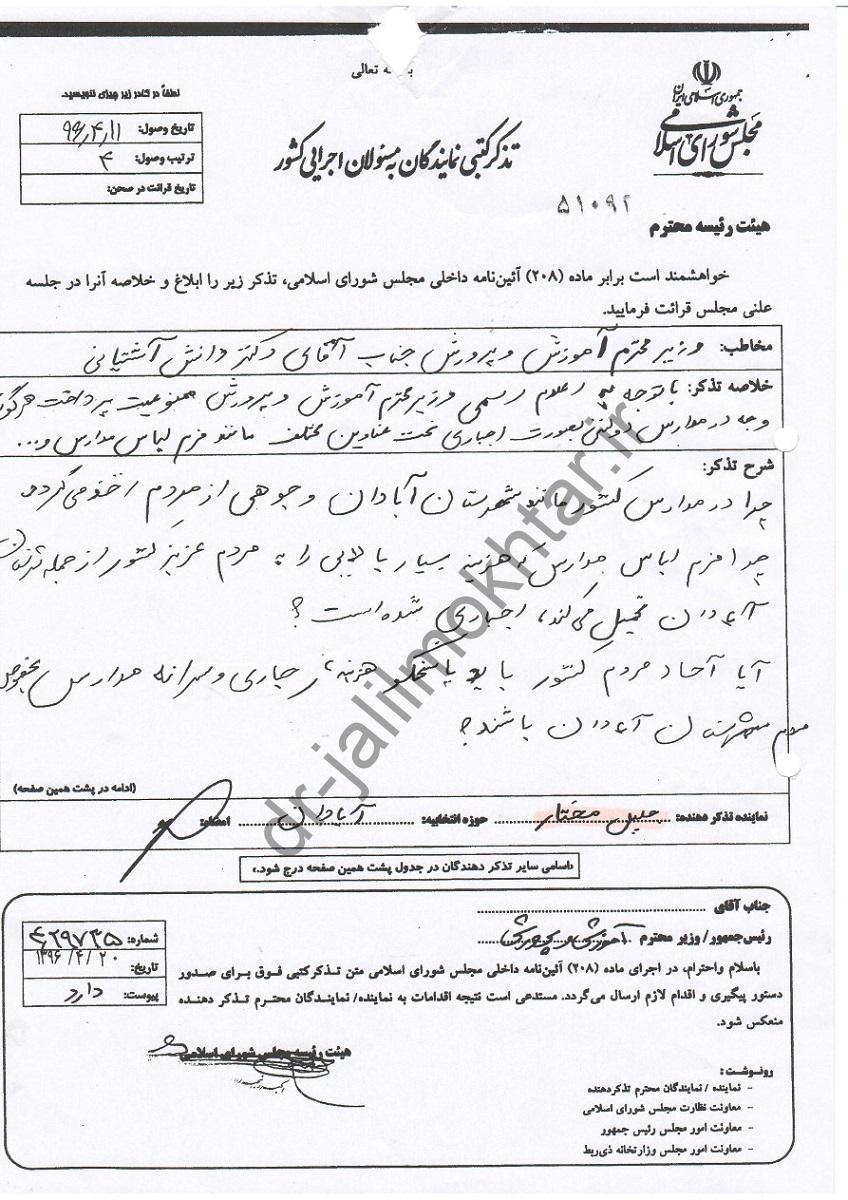 باسمه تعالی
جمهوری اسلامی ایران
مجلس شورای اسلامی
تذکر کتبی نمایندگان به مسئولان اجرایی کشور
لطفاً در کادر زیر چیزی ننویسید.
تاریخ وصول: ۹۶/۴/۱۱
ترتیب وصول: ۴
تاریخ قرائت در صحن:
۵۱۰۹۲
هیئت رئیسه محترم
خواهشمند است برابر ماده (۲۰۸) آئین‌نامه داخلی مجلس شورای اسلامی، تذکر زیر را ابلاغ و خلاصه آنرا در جلسه
علنی مجلس قرائت فرمایید.
مخاطب: وزیر محترم آموزش و پرورش جناب آقای دکتر دانش آشتیانی
خلاصه تذکر: با توجه به اعلام رسمی وزیر محترم آموزش و پرورش ممنوعیت پرداخت هرگونه
وجه در مدارس دولتی بصورت اجباری تحت عناوین مختلف مانند فرم لباس مدارس و...
شرح تذکر:
چرا در مدارس کشور مانند شهرستان آبادان وجوهی از مردم اخذ می گردد
چرا فرم لباس مدارس که هزینه بسیار بالایی را به مردم عزیز کشور از جمله
آبادان تحمیل می کند، اجباری شده است؟
آیا آحاد مردم کشور باید پاسخگو هزینه جاری و سرانه مدارس بخصوص
مردم شهرستان آبادان باشند؟
(ادامه در پشت همین صفحه)
نماینده تذکر دهنده: جلیل مختار حوزه انتخابیه: آبادان امضاء:
«اسامی سایر تذکر دهندگان در جدول پشت همین صفحه درج شود.»
جناب آقای
رئیس‌جمهور/ وزیر محترم آموزش و پرورش
شماره: ۴۲۹۷۳۵
تاریخ: ۱۳۹۶/۴/۲۰
پیوست: دارد
باسلام واحترام، در اجرای ماده (۲۰۸) آئین‌نامه داخلی مجلس شورای اسلامی متن تذکر کتبی فوق برای صدور
دستور پیگیری و اقدام لازم ارسال می‌گردد. مستدعی است نتیجه اقدامات به نماینده/ نمایندگان محترم تذکر دهنده
منعکس شود.
هیئت رئیسه مجلس شورای اسلامی
رونوشت:
- نماینده / نمایندگان محترم تذکردهنده
- معاونت نظارت مجلس شورای اسلامی
- معاونت امور مجلس رئیس جمهور
- معاونت امور مجلس وزارتخانه ذی‌ربط
dr-jalilmokhtar.ir